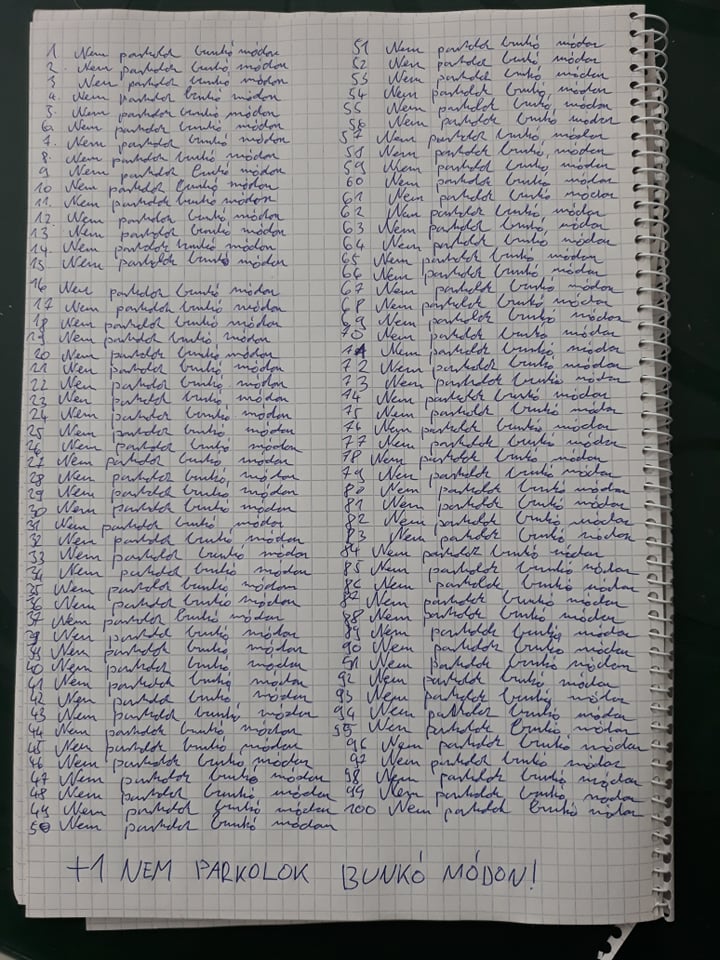 1. Nem parkolok bunkó módon
2. Nem parkolok bunkó módon
3. Nem parkolok bunkó módon
4. Nem parkolok bunkó módon
5. Nem parkolok bunkó módon
6. Nem parkolok bunkó módon
7. Nem parkolok bunkó módon
8. Nem parkolok bunkó módon
9 Nem parkolok bunkó módon
10 Nem parkolok bunkó módon
11. Nem parkolok bunkó módon
12 Nem parkolok bunkó módon
13. Nem parkolok bunkó módon
14. Nem parkolok bunkó módon
15. Nem parkolok bunkó módon
16 Nem parkolok bunkó módon
17 Nem parkolok bunkó módon
18 Nem parkolok bunkó módon
19 Nem parkolok bunkó módon
20 Nem parkolok bunkó módon
21 Nem parkolok bunkó módon
22 Nem parkolok bunkó módon
23 Nem parkolok bunkó módon
24 Nem parkolok bunkó módon
25 Nem parkolok bunkó módon
26 Nem parkolok bunkó módon
27 Nem parkolok bunkó módon
28 Nem parkolok bunkó módon
29 Nem parkolok bunkó módon
30 Nem parkolok bunkó módon
31 Nem parkolok bunkó módon
32 Nem parkolok bunkó módon
33 Nem parkolok bunkó módon
34 Nem parkolok bunkó módon
35 Nem parkolok bunkó módon
36 Nem parkolok bunkó módon
37 Nem parkolok bunkó módon
38 Nem parkolok bunkó módon
39 Nem parkolok bunkó módon
40 Nem parkolok bunkó módon
41 Nem parkolok bunkó módon
42 Nem parkolok bunkó módon
43 Nem parkolok bunkó módon
44 Nem parkolok bunkó módon
45 Nem parkolok bunkó módon
46 Nem parkolok bunkó módon
47 Nem parkolok bunkó módon
48 Nem parkolok bunkó módon
49 Nem parkolok bunkó módon
50 Nem parkolok bunkó módon
51 Nem parkolok bunkó módon
52 Nem parkolok bunkó módon
53 Nem parkolok bunkó módon
54 Nem parkolok bunkó módon
55 Nem parkolok bunkó módon
56 Nem parkolok bunkó módon
57 Nem parkolok bunkó módon
58 Nem parkolok bunkó módon
59 Nem parkolok bunkó módon
60 Nem parkolok bunkó módon
61 Nem parkolok bunkó módon
62 Nem parkolok bunkó módon
63 Nem parkolok bunkó módon
64 Nem parkolok bunkó módon
65 Nem parkolok bunkó módon
66 Nem parkolok bunkó módon
67 Nem parkolok bunkó módon
68 Nem parkolok bunkó módon
69 Nem parkolok bunkó módon
70 Nem parkolok bunkó módon
71 Nem parkolok bunkó módon
72 Nem parkolok bunkó módon
73 Nem parkolok bunkó módon
74 Nem parkolok bunkó módon
75 Nem parkolok bunkó módon
76 Nem parkolok bunkó módon
77 Nem parkolok bunkó módon
78 Nem parkolok bunkó módon
79 Nem parkolok bunkó módon
80 Nem parkolok bunkó módon
81 Nem parkolok bunkó módon
82 Nem parkolok bunkó módon
83 Nem parkolok bunkó módon
84 Nem parkolok bunkó módon
85 Nem parkolok bunkó módon
86 Nem parkolok bunkó módon
87 Nem parkolok bunkó módon
88 Nem parkolok bunkó módon
89 Nem parkolok bunkó módon
90 Nem parkolok bunkó módon
91 Nem parkolok bunkó módon
92 Nem parkolok bunkó módon
93 Nem parkolok bunkó módon
94 Nem parkolok bunkó módon
95 Nem parkolok bunkó módon
96 Nem parkolok bunkó módon
97 Nem parkolok bunkó módon
98 Nem parkolok bunkó módon
99 Nem parkolok bunkó módon
100 Nem parkolok bunkó módon
+1 NEM PARKOLOK BUNKÓ MÓDON!